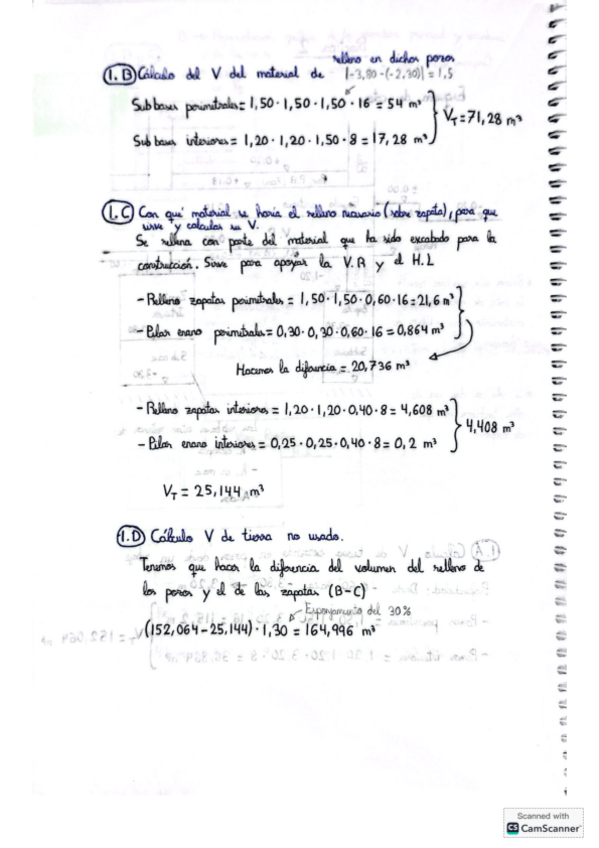 1.B Cálculo del V del material de relleno en dichos pozos
|-3,80-(-2,30)| = 1,5
Sub bases perimetrales = 1,50 · 1,50 · 1,50 · 16 = 54 m³
VT = 71,28 m³
Sub bases interiores = 1,20 · 1,20 · 1,50 · 8 = 17,28 m³
1.C Con qué material se haría el relleno necesario (sobre zapata), para que
sirve y calcular su V.
Se rellena con parte del material que ha sido excabado para la
construcción. Sirve para apoyar la V.A y el H.L
- Relleno zapatas perimetrales = 1,50 · 1,50 · 0,60 · 16 = 21,6 m³
- Pilar enano perimetrales = 0,30 · 0,30 · 0,60 · 16 = 0,864 m³
Hacemos la diferencia = 20,736 m³
- Relleno zapatas interiores = 1,20 · 1,20 · 0,40 · 8 = 4,608 m³
4,408 m³
- Pilar enano interiores = 0,25 · 0,25 · 0,40 · 8 = 0,2 m³
VT = 25,144 m³
1.D Cálculo V de tierra no usado.
Tenemos que hacer la diferencia del volumen del relleno de
los pozos y el de las zapatas (B-C)
Esponjamiento del 30%
(152,064-25,144) · 1,30 = 164,996 m³
Scanned with
CS CamScanner